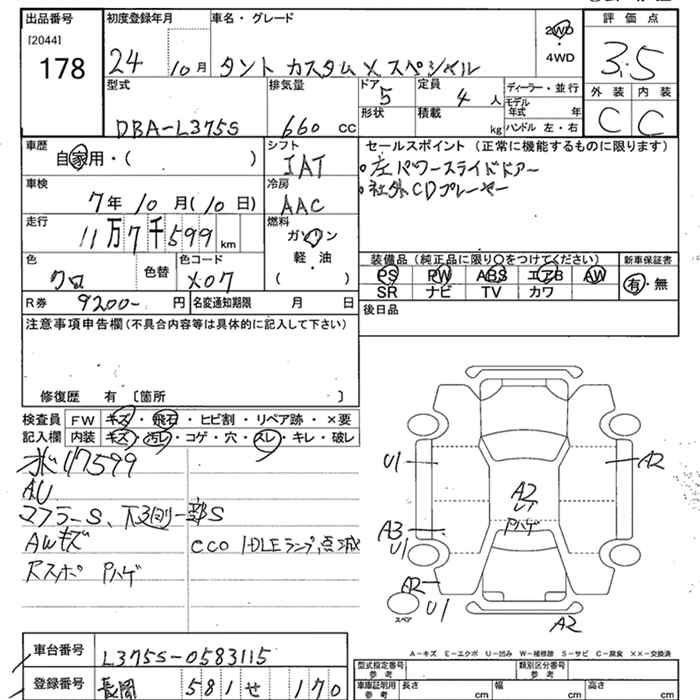 出品番号
[2044]
178
初度登録年月
24 10月
車名・グレード
タント カスタム X スペシャル
2WD
・
4WD
評価点
3.5
外装 内装
C C
型式
DBA-L375S
排気量
660 CC
ドア
5
形状
定員
4 人
積載
kg
ディーラー・並行
モデル年式 年
ハンドル 左・右
車歴
自家用・( )
シフト
IAT
車検
7年10月(10日)
冷房
AAC
走行
11万7千599km
燃料
ガソリン
・
軽油
・
( )
色
クロ
色替
色コード
X07
R券 9200- 円
名変通知期限 月 日
セールスポイント(正常に機能するものに限ります)
○左パワースライドドアー
○社外CDプレーヤー
装備品(純正品に限り○をつけてください)
PS PW ABS エアB AW
SR ナビ TV カワ
新車保証書
有・無
後日品
注意事項申告欄(不具合内容等は具体的に記入して下さい)
修復歴 有〔箇所
検査員記入欄
FW キズ・飛石・ヒビ割・リペア跡・×要
内装 キズ・汚れ・コゲ・穴・スレ・キレ・破レ
117599
AU
マフラーS、下廻り一部S
AWキズ
eco IDLEランプ点滅
Rスポ Pハゲ
U1
A2
A2
U1
Pハゲ
A3
U1
A2
U1
スペア
A2
A-キズ E-エクボ U-凹み W-補修跡 S-サビ C-腐食 ××-交換済
車台番号 L375S-0583115
登録番号 長岡 581 せ 170
型式指定番号
参考
類別区分番号
参考
車庫証明用
参考
長さ cm
幅 cm
高さ cm